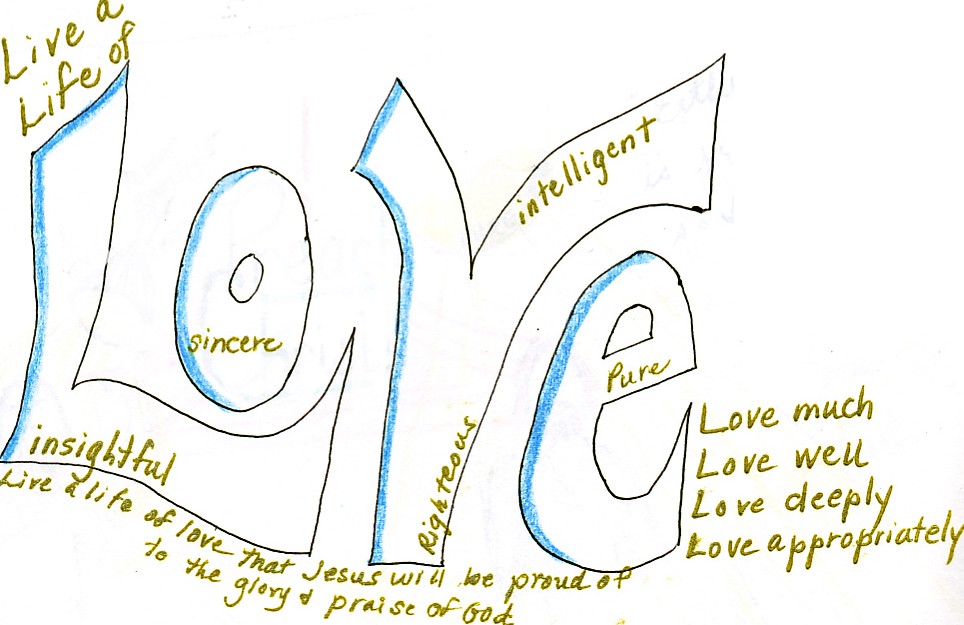 Live a
Life of
LOVe
intelligent
sincere
Pure
insightful
Righteous
Love much
Love well
Love deeply
Love appropriately
Live a life of love that Jesus will be proud of
to the glory & praise of God